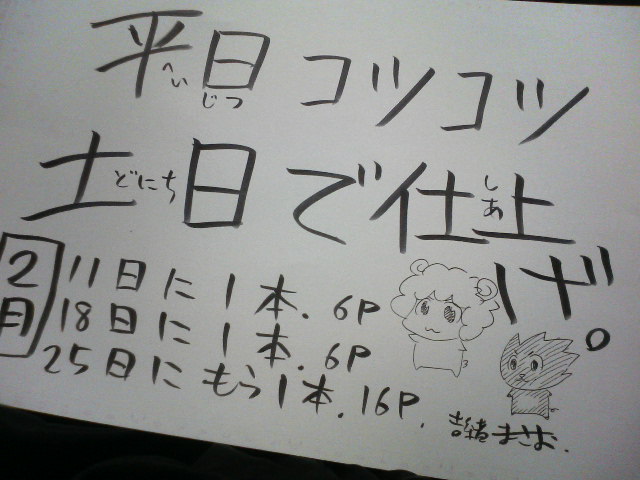 平日コツコツ
へいじつ
土日で仕上げ。
どにち
しあ
2月
11日に1本. 6P
18日に1本. 6P
25日にもう1本. 16P.
吉緒まさお.